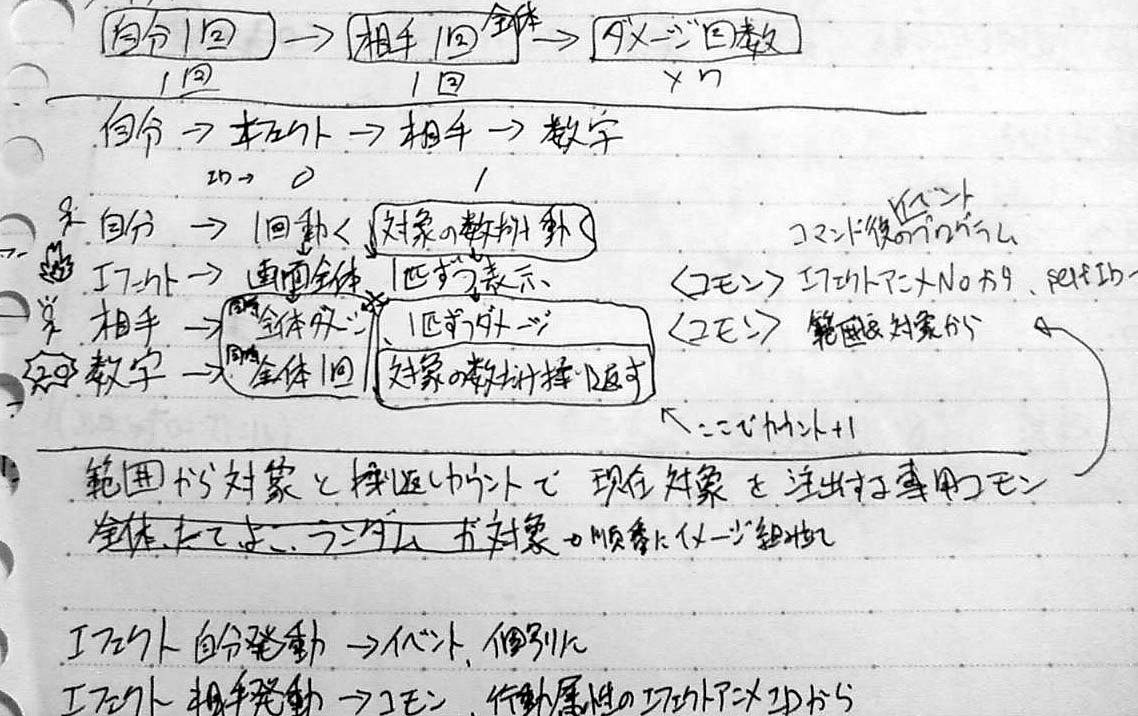 自分1回 → 相手1回 全体 → ダメージ回数
1回 1回 ×n
自分 → エフェクト → 相手 → 数字
ID→ 0 1
自分 → 1回動く 対象の数だけ動く
イベント
コマンド後のプログラム
エフェクト → 画面全体 1匹ずつ表示、 <コモン> エフェクトアニメNoから、selfID
相手 → 同時 全体ダメージ 1匹ずつダメージ <コモン> 範囲 対象から
20 数字 → 同時 全体1回 対象の数だけ繰り返す
↖ここでカウント+1
範囲から対象と繰返しカウントで 現在対象を注出する専用コモン
全体、たて、よこ、ランダム が対象 の順番にイメージ組立て
エフェクト 自分発動 →イベント、個別に
エフェクト 相手発動 →コモン、行動属性のエフェクトアニメIDから